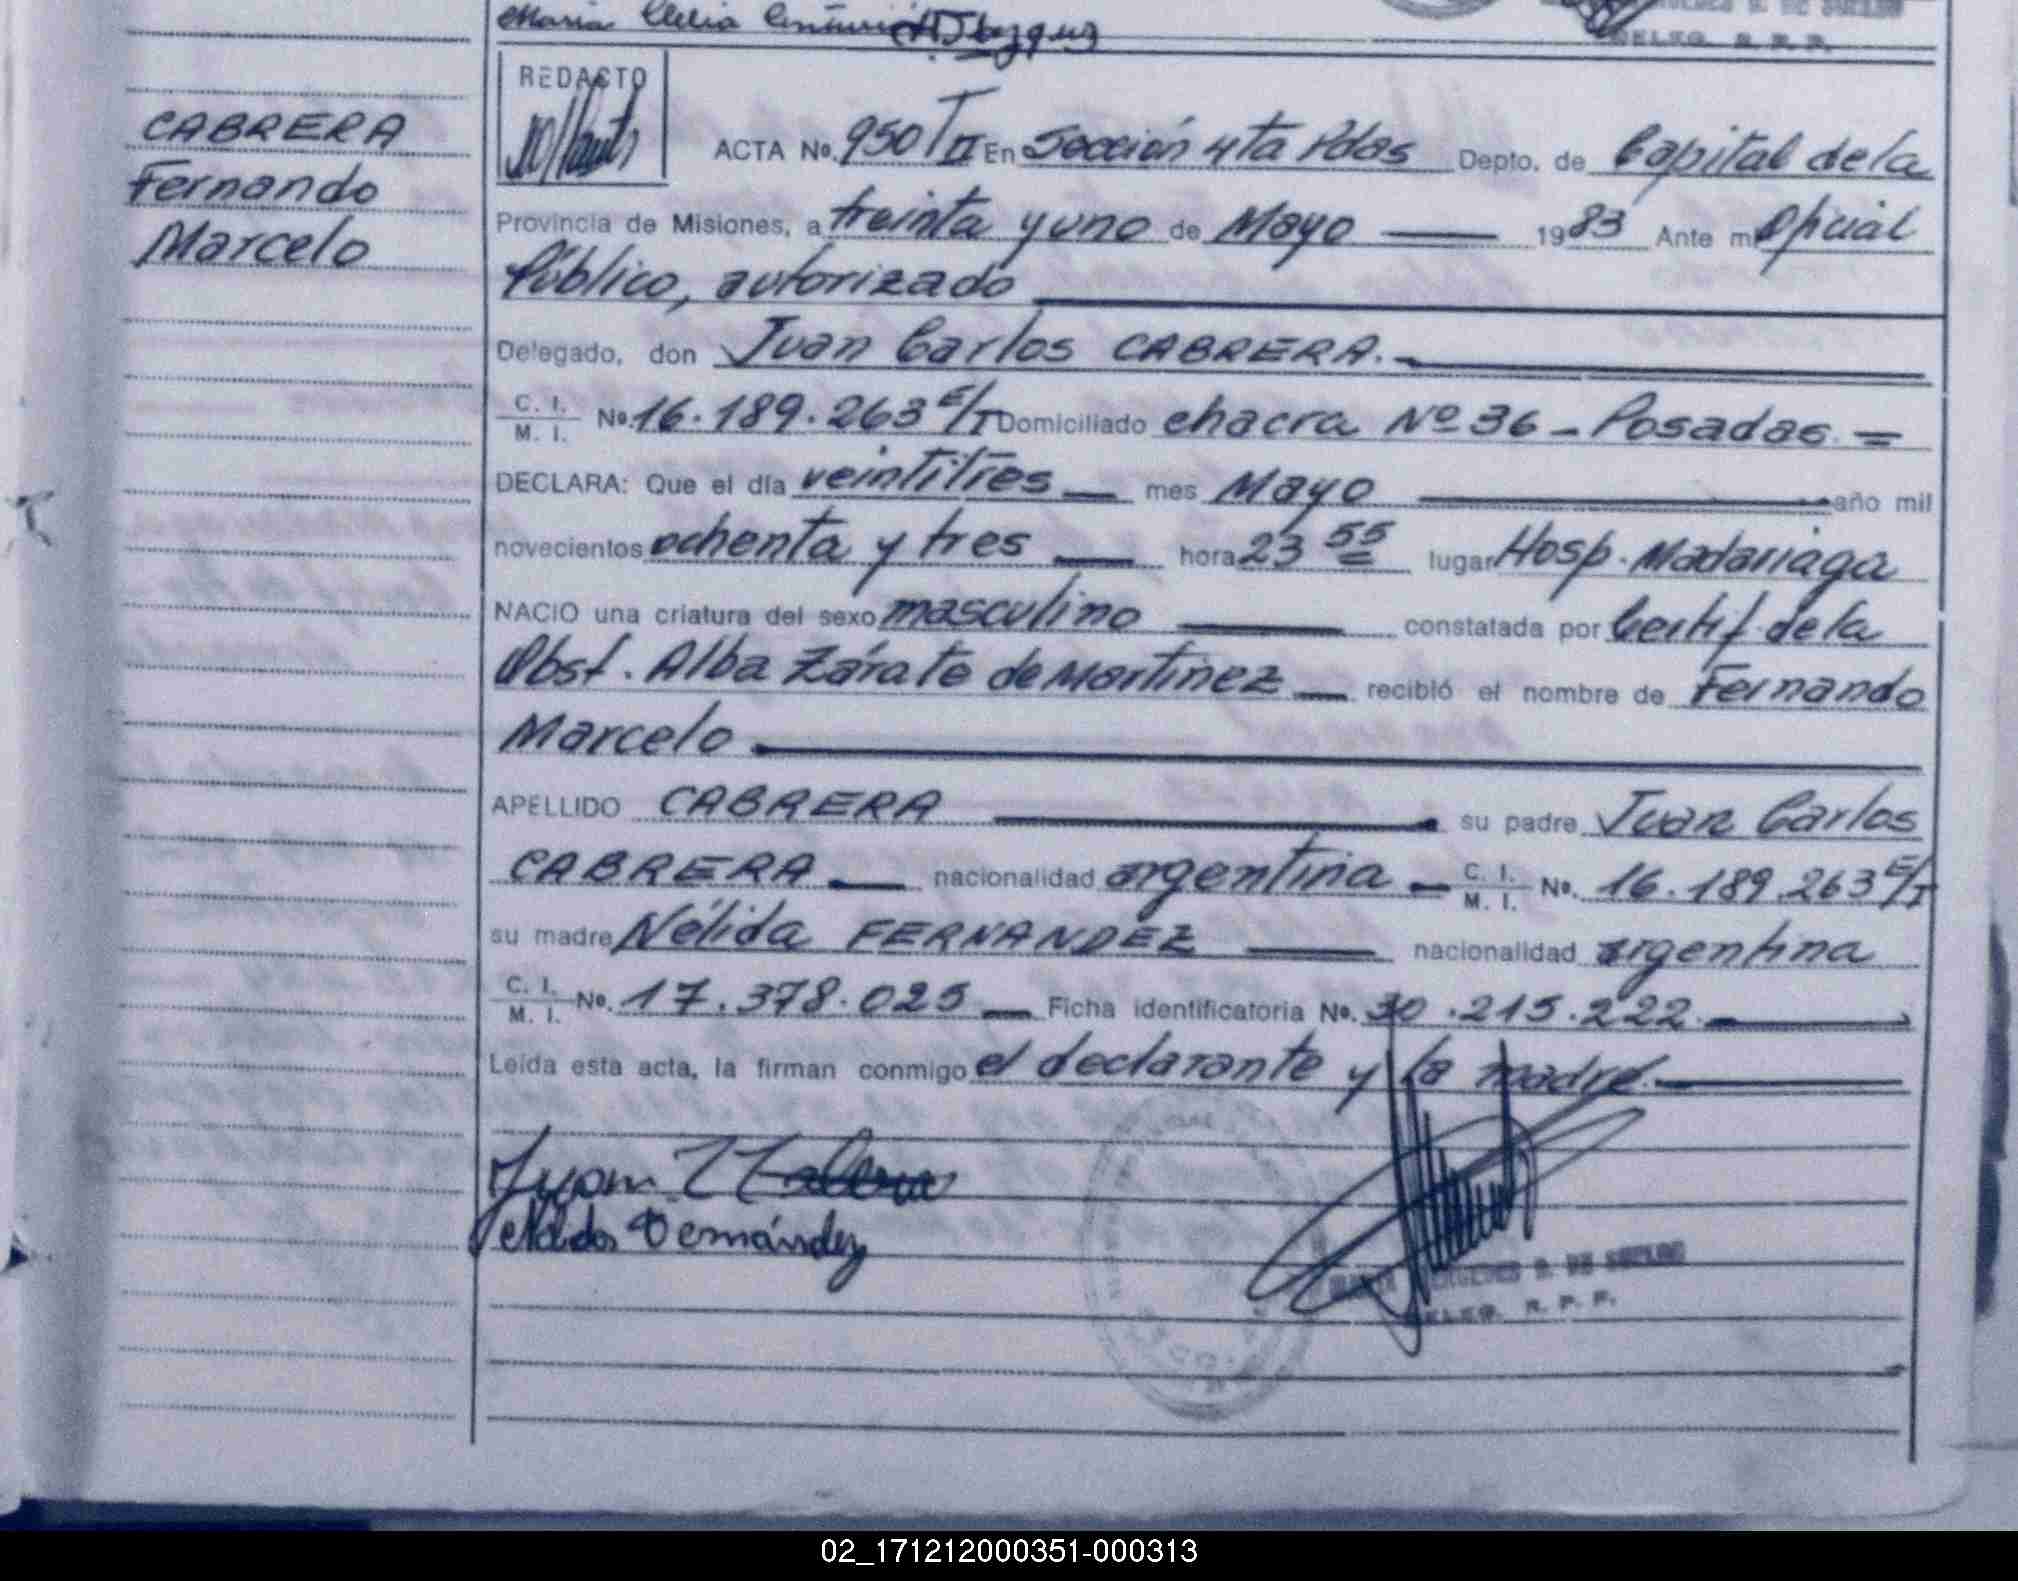 Maria Clelia
DELEG. R. P. P.
CABRERA
Fernando
Marcelo
REDACTO
ACTA No. 950 T II En Sección 4ta Pdas Depto. de Capital de la
Provincia de Misiones, a treinta y uno de Mayo 1983 Ante mi Oficial
Público, autorizado
Delegado, don Juan Carlos CABRERA.
C. I.
M. I. No. 16.189.263 E/T Domiciliado chacra Nº 36 - Posadas. =
DECLARA: Que el día veintitres mes Mayo año mil
novecientos ochenta y tres hora 23 55 lugar Hosp. Madariaga
NACIO una criatura del sexo masculino constatada por Certif. de la
Obst. Alba Zárate de Martinez recibió el nombre de Fernando
Marcelo
APELLIDO CABRERA su padre Juan Carlos
CABRERA nacionalidad argentina C. I. M. I. No. 16.189.263 E/T
su madre Nélida FERNANDEZ nacionalidad argentina
C. I. M. I. No. 17.378.025 Ficha identificatoria No. 30.215.222
Leída esta acta, la firman conmigo el declarante y la madre.
Fernández
DE SUELDO
DELEG. R. P. P.
02_171212000351-000313